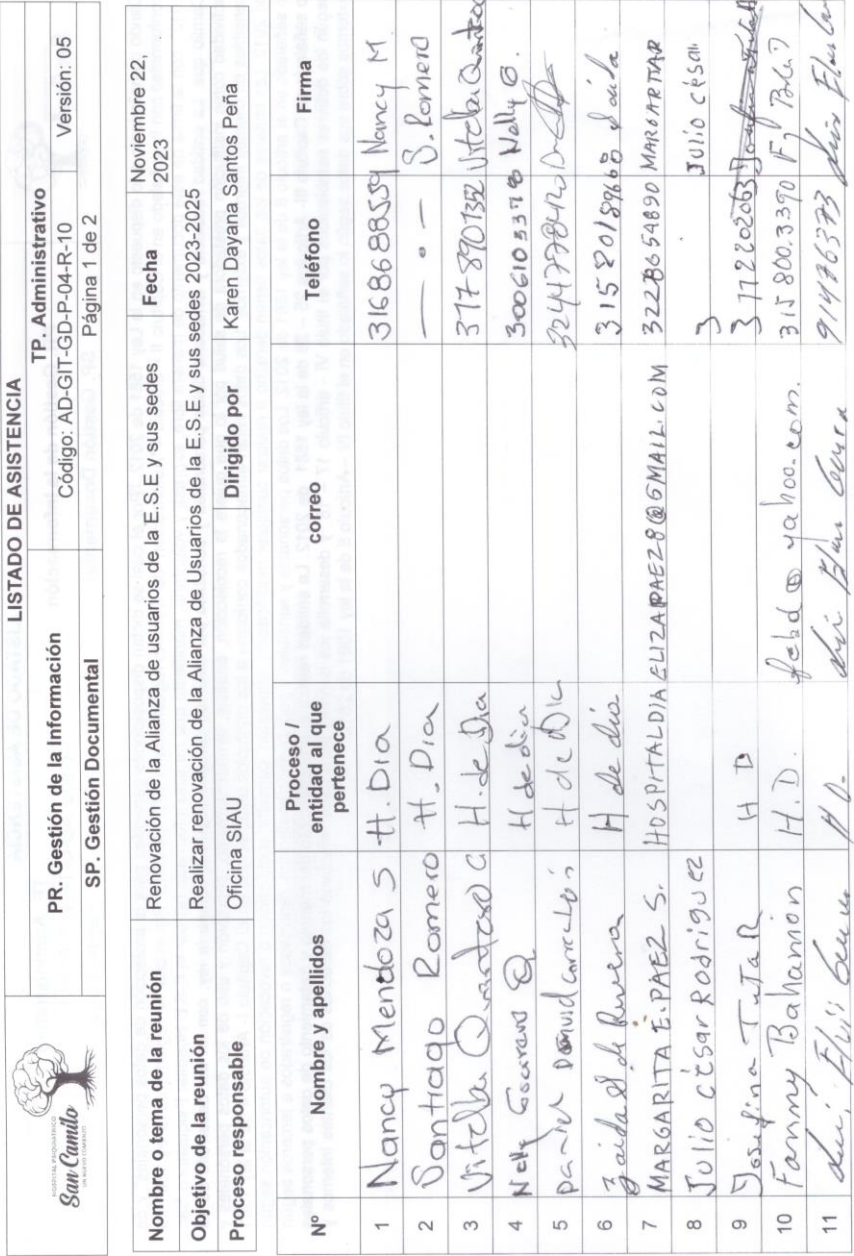 HOSPITAL PSIQUIÁTRICO
San Camilo
LISTADO DE ASISTENCIA
PR. Gestión de la Información
TP. Administrativo
SP. Gestión Documental
Código: AD-GIT-GD-P-04-R-10
Versión: 05
Página 1 de 2
Nombre o tema de la reunión
Renovación de la Alianza de usuarios de la E.S.E y sus sedes
Fecha
Noviembre 22, 2023
Objetivo de la reunión
Realizar renovación de la Alianza de Usuarios de la E.S.E y sus sedes 2023-2025
Proceso responsable
Oficina SIAU
Dirigido por
Karen Dayana Santos Peña
Nº Nombre y apellidos Proceso / entidad al que pertenece correo Teléfono Firma
1 Nancy Mendoza S H. DIA 3168688559 Nancy M
2 Santiago Romero H. Dia — . — S. Romero
3 Vitelba Q H. de Dia 3178901352 Vitelba
4 Nelly H de dia 3006103378 Nelly G.
5 H de Dia 3244778420
6 Zaida de Rivera H de dia 3158018966 Zaida
7 MARGARITA E. PAEZ S. HOSPITALDIA ELIZAPAEZ8@GMAIL.COM 3228654890 MARGARITAP
8 Julio César Rodriguez 3 Julio césar
9 Josefina H D 3172202063
10 Fanny Bahamon H.D. febd@yahoo.com. 315 800.3390
11 H.D. 91476373